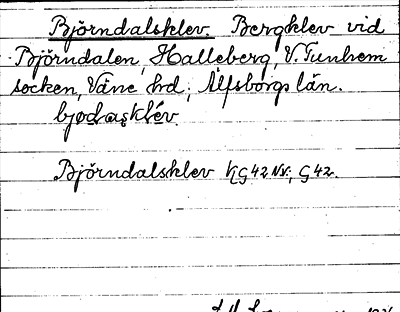 Björndalsklev. Bergklev vid
Björndalen, Halleberg, V. Tunhem
socken, Väne hd, Älfsborgs län.
Björndalsklev G42